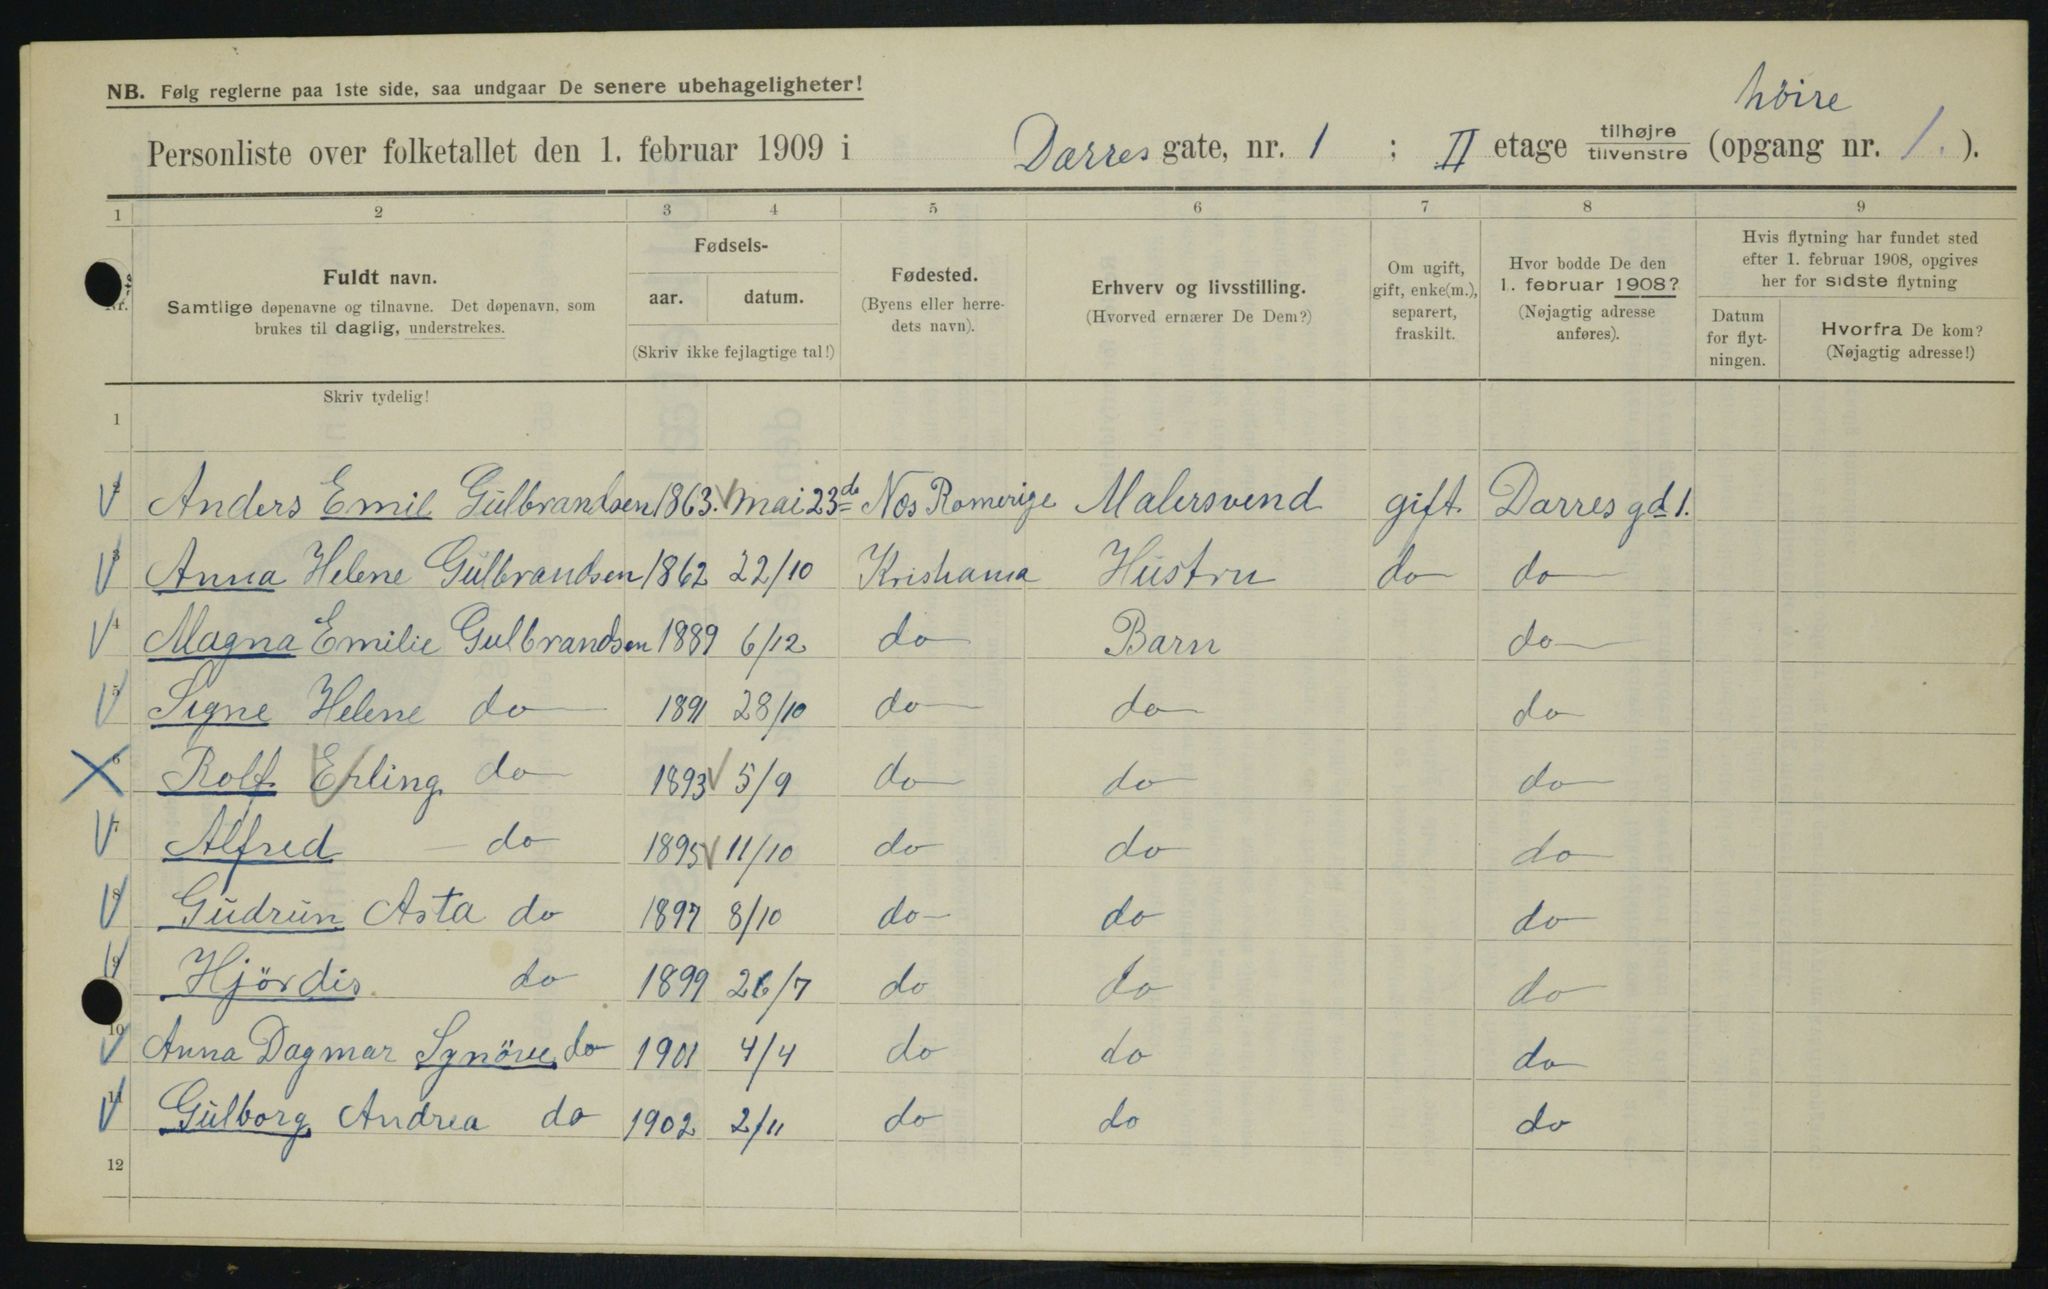 NB. Følg reglerne paa 1ste side, saa undgaar De senere ubehageligheter!
høire
Personliste over folketallet den 1. februar 1909 i Darres gate, nr. 1 ; II etage tilhøjre / tilvenstre (opgang nr. 1.).
1 2 3 4 5 6 7 8 9
Nr.
Fuldt navn.
Samtlige døpenavne og tilnavne. Det døpenavn, som
brukes til daglig, understrekes.
Fødsels-
aar. datum.
(Skriv ikke fejlagtige tal!)
Fødested.
(Byens eller herre-
dets navn).
Erhverv og livsstilling.
(Hvorved ernærer De Dem?)
Om ugift,
gift, enke(m.),
separert,
fraskilt.
Hvor bodde De den
1. februar 1908?
(Nøjagtig adresse
anføres).
Hvis flytning har fundet sted
efter 1. februar 1908, opgives
her for sidste flytning
Datum
for flyt-
ningen.
Hvorfra De kom?
(Nøjagtig adresse!)
Skriv tydelig!
1
2 Anders Emil Gulbrandsen 1863. mai 23de Nes Romerige Malersvend gift Darres gd 1.
3 Anna Helene Gulbrandsen 1862 22/10 Kristiania Hustru do do
4 Magna Emilie Gulbrandsen 1889 6/12 do Barn do
5 Signe Helene do 1891 28/10 do do do
6 Rolf Erling do 1893 5/9 do do do
7 Alfred do 1895 11/10 do do do
8 Gudrun Asta do 1897 8/10 do do do
9 Hjördis do 1899 26/7 do do do
10 Anna Dagmar Synöve do 1901 4/4 do do do
11 Gulborg Andrea do 1902 2/11 do do do
12